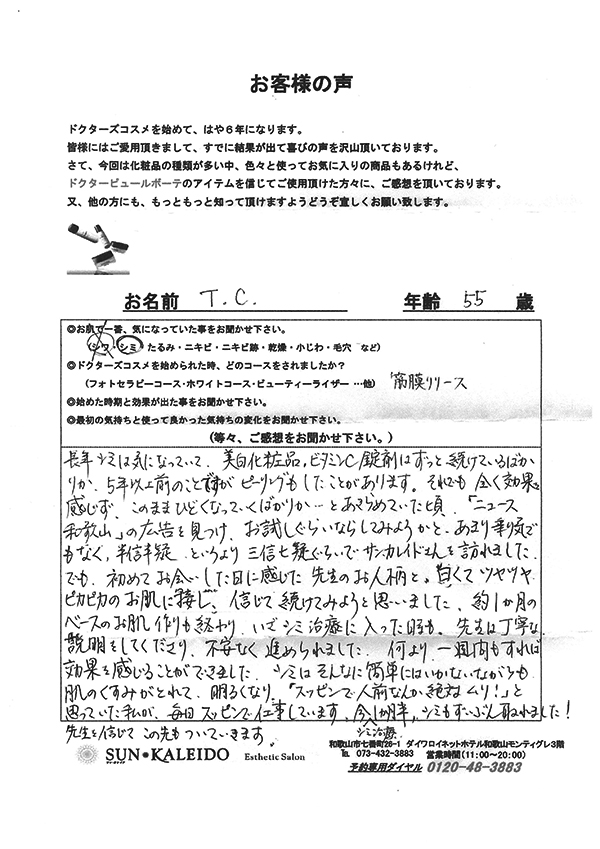 お客様の声
ドクターズコスメを始めて、はや６年になります。
皆様にはご愛用頂きまして、すでに結果が出て喜びの声を沢山頂いております。
さて、今回は化粧品の種類が多い中、色々と使ってお気に入りの商品もあるけれど、
ドクターピュールボーテのアイテムを信じてご使用頂けた方々に、ご感想を頂いております。
又、他の方にも、もっともっと知って頂けますようどうぞ宜しくお願い致します。
お名前 T.C. 年齢 55 歳
◎お肌で一番、気になっていた事をお聞かせ下さい。
(シワ・シミ・たるみ・ニキビ・ニキビ跡・乾燥・小じわ・毛穴 など)
◎ドクターズコスメを始められた時、どのコースをされましたか？
(フォトセラピーコース・ホワイトコース・ビューティーライザー …他) 筋膜リリース
◎始めた時期と効果が出た事をお聞かせ下さい。
◎最初の気持ちと使って良かった気持ちの変化をお聞かせ下さい。
(等々、ご感想をお聞かせ下さい。)
長年シミは気になっていて、美白化粧品、ビタミンC錠剤はずっと続けているばか
りか、5年以上前のことですがピーリングもしたことがあります。それでも全く効果を
感じず、このままひどくなっていくばかりか…とあきらめていた頃、「ニュース
和歌山」の広告を見つけ、お試しぐらいならしてみようかと、あまり乗り気で
もなく、半信半疑というより三信七疑ぐらいでサンカレイドさんを訪れました。
でも、初めてお会いした日に感じた先生のお人柄と、白くてツヤツヤ
ピカピカのお肌に接し、信じて続けてみようと思いました。約1か月の
ベースのお肌作りも終わり、いざシミ治療に入った日も、先生は丁寧な
説明をしてくださり、不安なく進められました。何より一週間もすれば
効果を感じることができました。シミはそんなに簡単にはいかないながらも
肌のくすみがとれて、明るくなり、「スッピンで人前なんか絶対ムリ！」と
思っていた私が、毎日スッピンで仕事しています。今1か月半、シミもずいぶんとれました！
シミ治療
先生を信じてこの先もついていきます。
SUN・KALEIDO Esthetic Salon
和歌山市七番町26-1 ダイワロイネットホテル和歌山モンティグレ3階
TEL 073-432-3883 営業時間(11:00～20:00)
予約専用ダイヤル 0120-48-3883